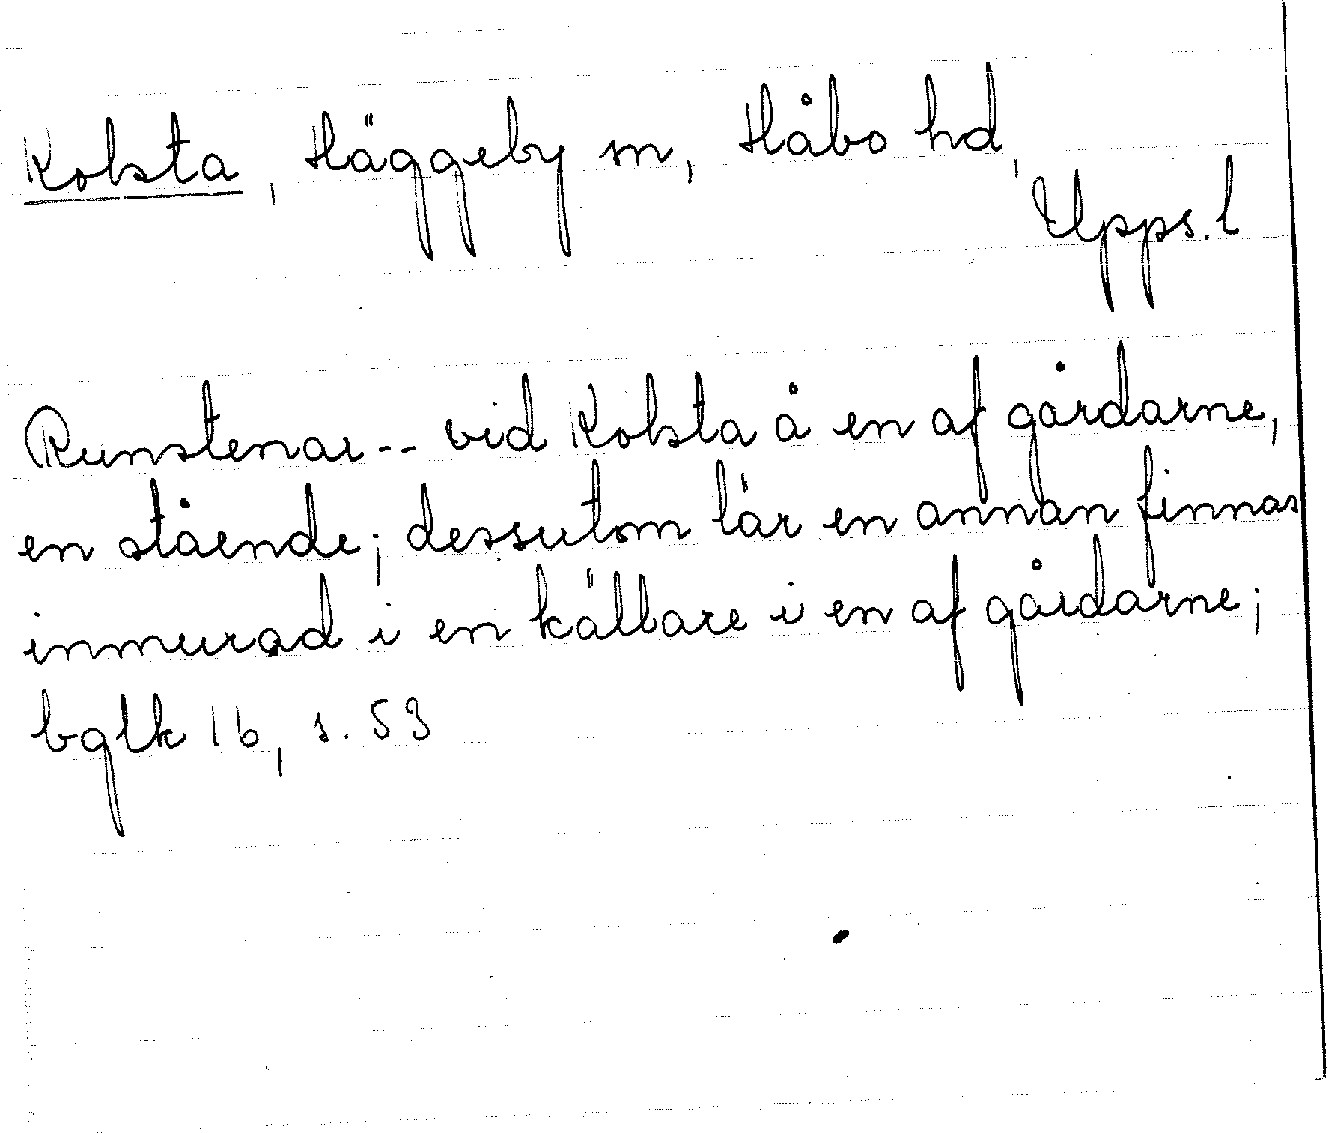 Kolsta, Häggeby sn, Håbo hd,
Upps. l
Runstenar -- vid Kolsta å en af gårdarne,
en stående; dessutom lär en annan finnas
inmurad i en källare i en af gårdarne;
bglk 16, s. 53